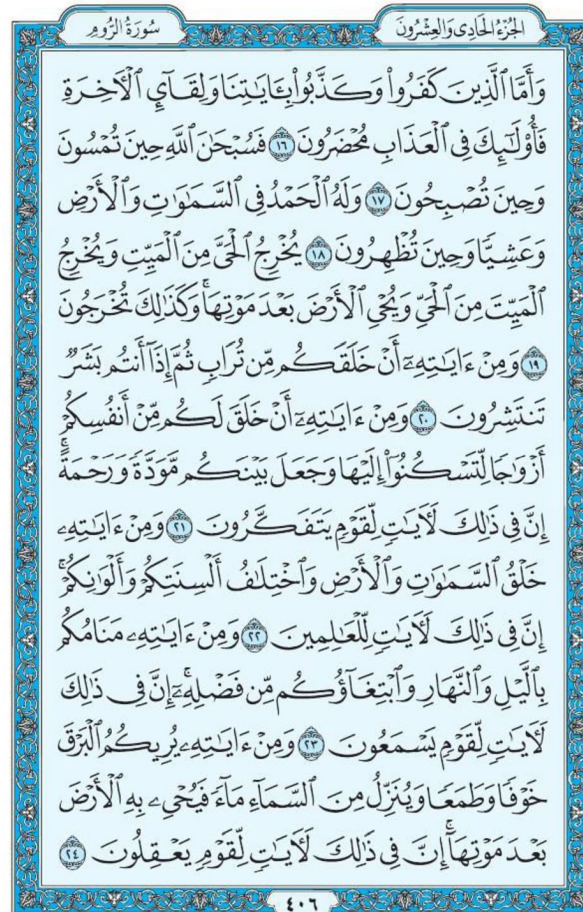 الجُزْءُ الحَادِي وَالعِشْرُونَ
سُورَةُ الرُّومِ
وَأَمَّا ٱلَّذِينَ كَفَرُواْ وَكَذَّبُواْ بِـَٔايَٰتِنَا وَلِقَآيِٕ ٱلۡأٓخِرَةِ
فَأُوْلَٰٓئِكَ فِي ٱلۡعَذَابِ مُحۡضَرُونَ ١٦ فَسُبۡحَٰنَ ٱللَّهِ حِينَ تُمۡسُونَ
وَحِينَ تُصۡبِحُونَ ١٧ وَلَهُ ٱلۡحَمۡدُ فِي ٱلسَّمَٰوَٰتِ وَٱلۡأَرۡضِ
وَعَشِيّٗا وَحِينَ تُظۡهِرُونَ ١٨ يُخۡرِجُ ٱلۡحَيَّ مِنَ ٱلۡمَيِّتِ وَيُخۡرِجُ
ٱلۡمَيِّتَ مِنَ ٱلۡحَيِّ وَيُحۡيِ ٱلۡأَرۡضَ بَعۡدَ مَوۡتِهَاۚ وَكَذَٰلِكَ تُخۡرَجُونَ
١٩ وَمِنۡ ءَايَٰتِهِۦٓ أَنۡ خَلَقَكُم مِّن تُرَابٖ ثُمَّ إِذَآ أَنتُم بَشَرٞ
تَنتَشِرُونَ ٢٠ وَمِنۡ ءَايَٰتِهِۦٓ أَنۡ خَلَقَ لَكُم مِّنۡ أَنفُسِكُمۡ
أَزۡوَٰجٗا لِّتَسۡكُنُوٓاْ إِلَيۡهَا وَجَعَلَ بَيۡنَكُم مَّوَدَّةٗ وَرَحۡمَةًۚ
إِنَّ فِي ذَٰلِكَ لَأٓيَٰتٖ لِّقَوۡمٖ يَتَفَكَّرُونَ ٢١ وَمِنۡ ءَايَٰتِهِۦ
خَلۡقُ ٱلسَّمَٰوَٰتِ وَٱلۡأَرۡضِ وَٱخۡتِلَٰفُ أَلۡسِنَتِكُمۡ وَأَلۡوَٰنِكُمۡۚ
إِنَّ فِي ذَٰلِكَ لَأٓيَٰتٖ لِّلۡعَٰلِمِينَ ٢٢ وَمِنۡ ءَايَٰتِهِۦ مَنَامُكُم
بِٱلَّيۡلِ وَٱلنَّهَارِ وَٱبۡتِغَآؤُكُم مِّن فَضۡلِهِۦٓۚ إِنَّ فِي ذَٰلِكَ
لَأٓيَٰتٖ لِّقَوۡمٖ يَسۡمَعُونَ ٢٣ وَمِنۡ ءَايَٰتِهِۦ يُرِيكُمُ ٱلۡبَرۡقَ
خَوۡفٗا وَطَمَعٗا وَيُنَزِّلُ مِنَ ٱلسَّمَآءِ مَآءٗ فَيُحۡيِۦ بِهِ ٱلۡأَرۡضَ
بَعۡدَ مَوۡتِهَآۚ إِنَّ فِي ذَٰلِكَ لَأٓيَٰتٖ لِّقَوۡمٖ يَعۡقِلُونَ ٢٤
٤٠٦